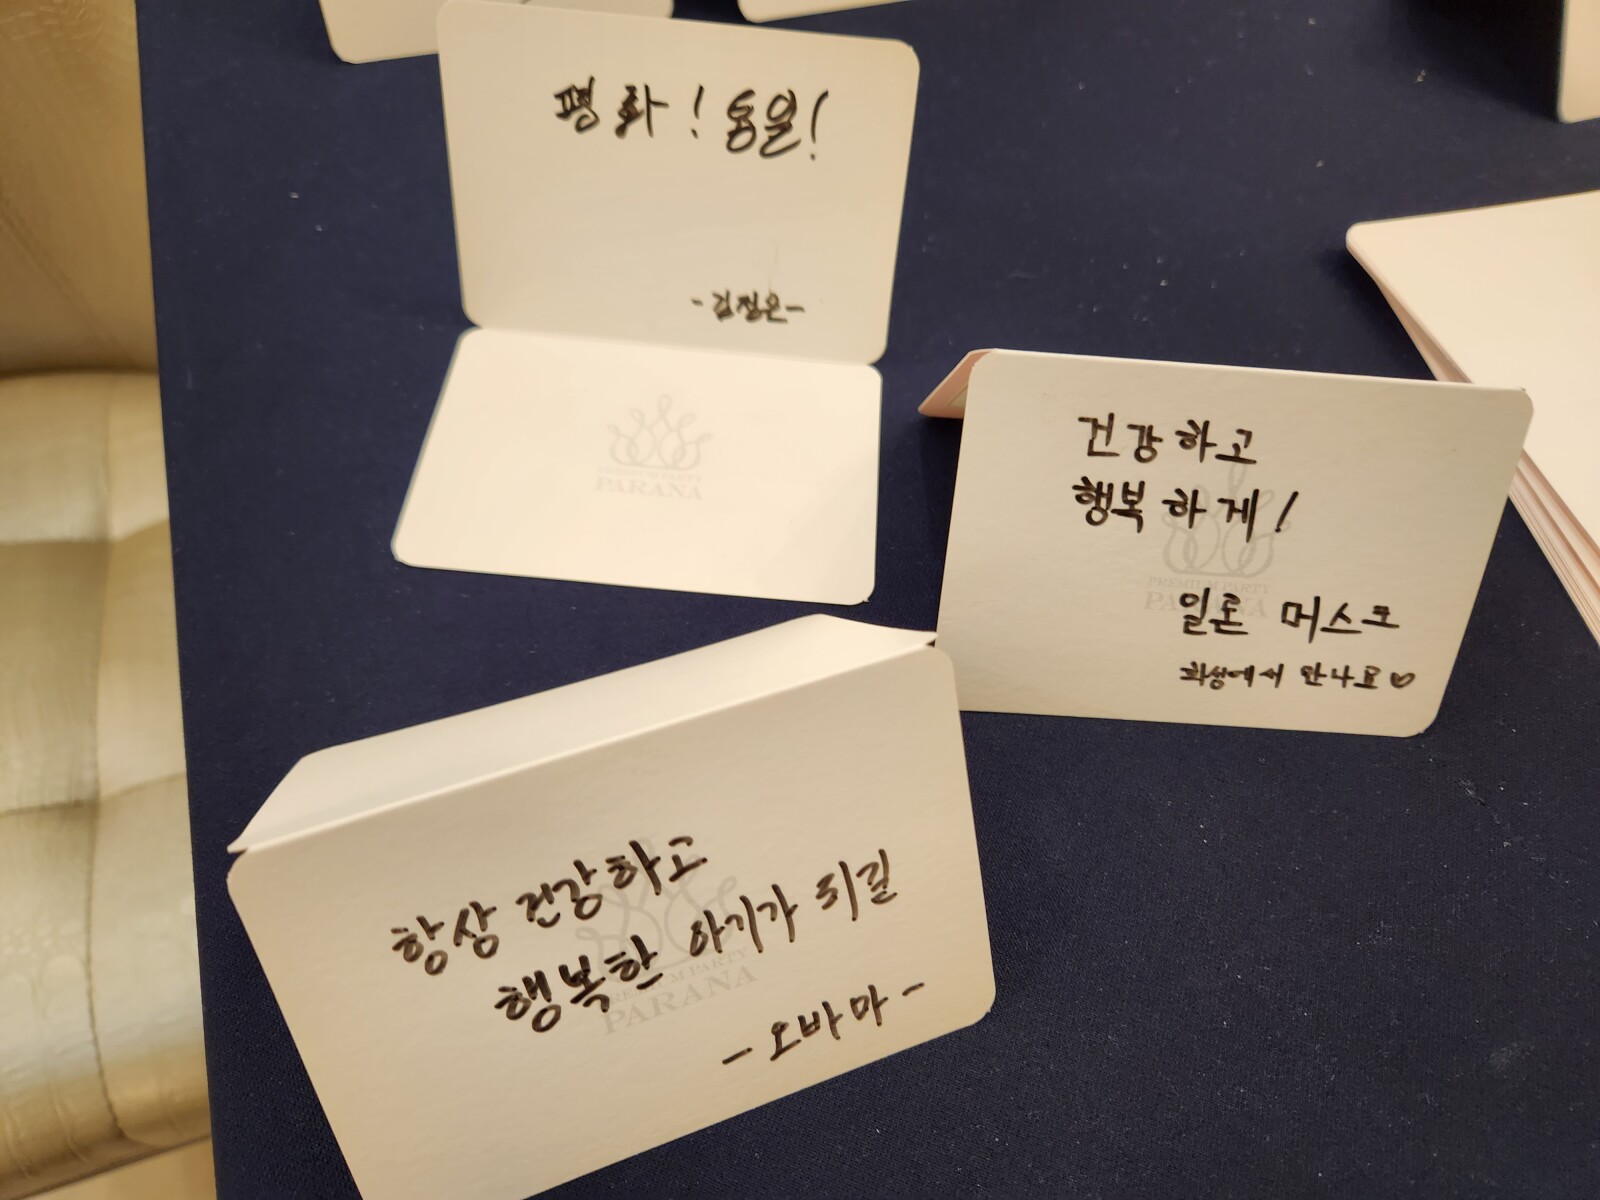 평화!통일!
-김정은-
PREMIUM PARTY
PARANA
건강하고
행복하게!
일론 머스크
화성에서 만나요♡
PREMIUM PARTY
PARANA
항상 건강하고
행복한 아기가 되길
-오바마-
PREMIUM PARTY
PARANA